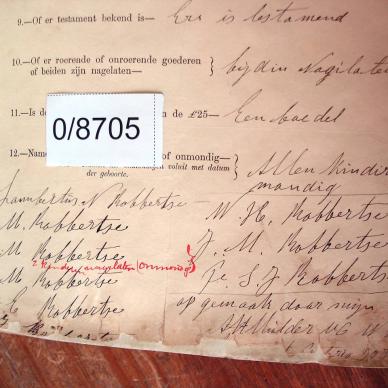 9.—Of er testament bekend is— Er is testamend
10.—Of er roerende of onroerende goederen
of beiden zijn nagelaten— } bijdin Nagilaten
11.—Is de de £25— Een boedel
0/8705
12.—Name of onmondig—
voluit met datum
der geboorte. } Allen Kinder
mondig
Lambertus N Robbertse W. H. Robbertse
M. Robbertse J. M. Robbertse
M Robbertse
2 Kinders nagelaten (onmondig)
M Robbertse S. J. Robbertse
C Robbertse op gemaak daar mijn